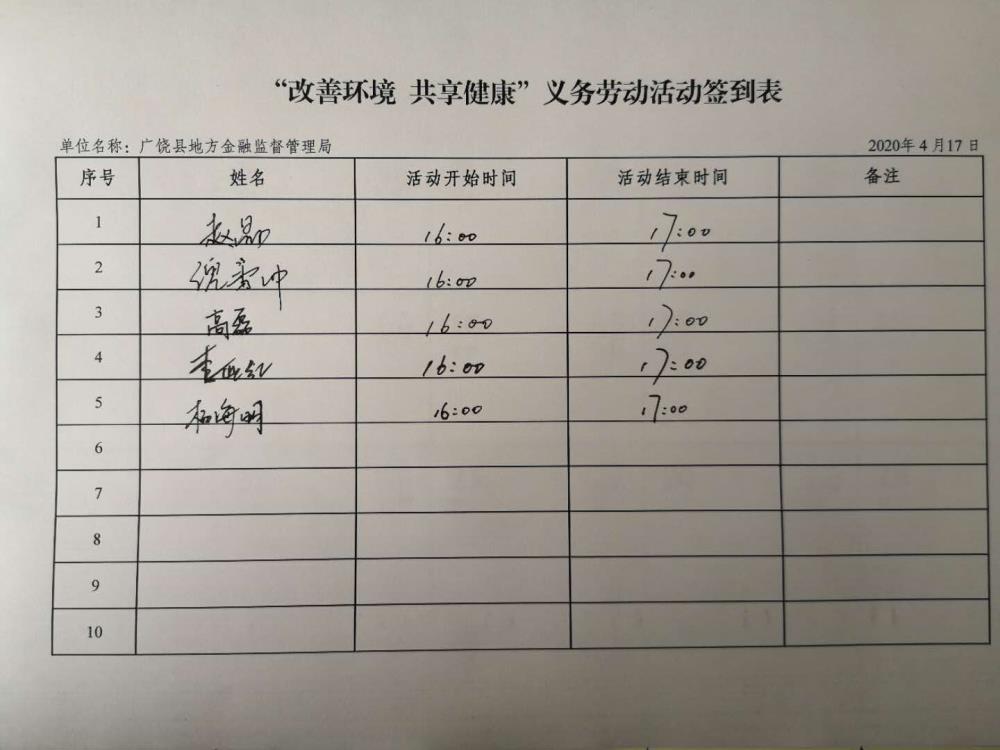 “改善环境 共享健康”义务劳动活动签到表
单位名称：广饶县地方金融监督管理局 2020年4月17日
序号 姓名 活动开始时间 活动结束时间 备注
1 赵 16:00 17:00
2 倪 16:00 17:00
3 高磊 16:00 17:00
4 李 16:00 17:00
5 海明 16:00 17:00
6
7
8
9
10